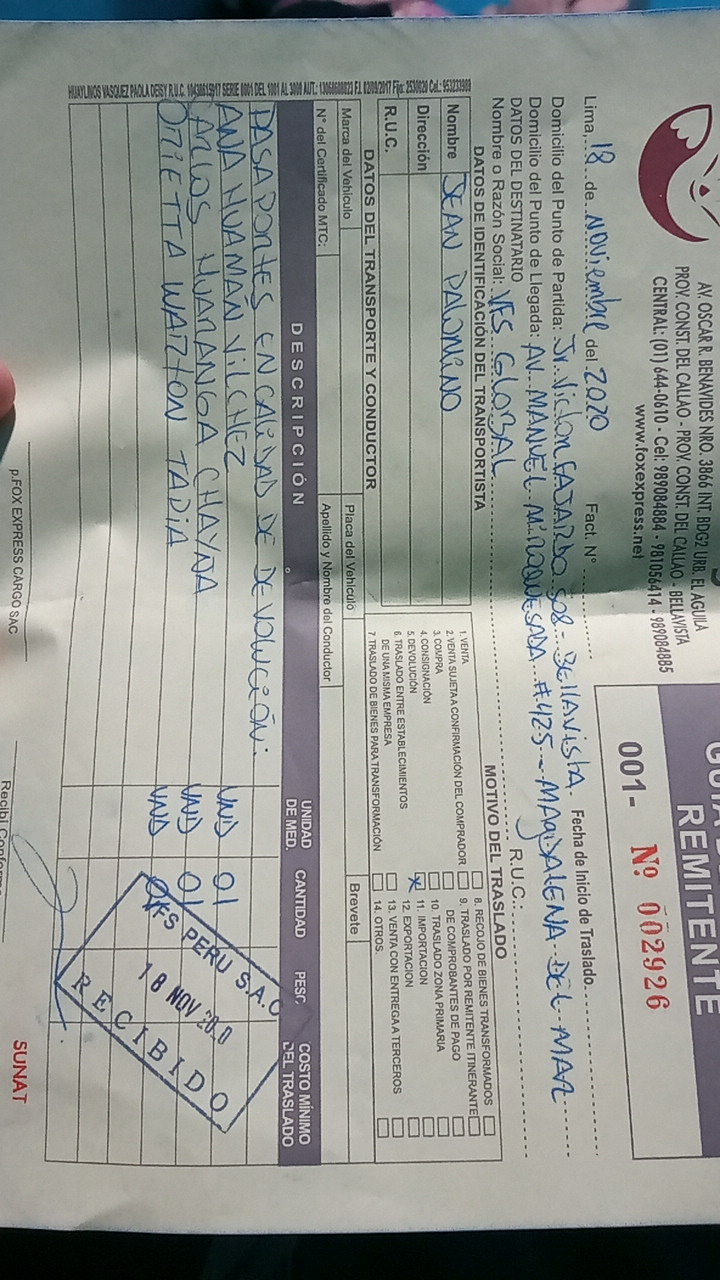 AV. OSCAR R. BENAVIDES NRO. 3866 INT. BDG2 URB. EL AGUILA
PROV. CONST. DEL CALLAO - PROV. CONST. DEL CALLAO - BELLAVISTA
CENTRAL: (01) 644-0610 - Cel: 989084884 - 981056414 - 989084885
www.foxexpress.net
REMITENTE
001- Nº 002926
Lima, 18 de NOViembre del 2020 Fact. N° Fecha de Inicio de Traslado.
Domicilio del Punto de Partida: Jr. Victor FAJARDO 508 - BellAvista.
Domicilio del Punto de Llegada: AV. MANUEL M. ROQUESADA #425 - MAgDALENA DEL MAR
DATOS DEL DESTINATARIO
Nombre o Razón Social: VFS GLOBAL R.U.C.:
DATOS DE IDENTIFICACIÓN DEL TRANSPORTISTA
Nombre JEAN PALOMINO
Dirección
R.U.C.
MOTIVO DEL TRASLADO
1. VENTA
2. VENTA SUJETA A CONFIRMACIÓN DEL COMPRADOR
3. COMPRA
4. CONSIGNACIÓN
5. DEVOLUCIÓN X
6. TRASLADO ENTRE ESTABLECIMIENTOS
DE UNA MISMA EMPRESA
7. TRASLADO DE BIENES PARA TRANSFORMACIÓN
8. RECOJO DE BIENES TRANSFORMADOS
9. TRASLADO POR REMITENTE ITINERANTE
DE COMPROBANTES DE PAGO
10. TRASLADO ZONA PRIMARIA
11. IMPORTACION
12. EXPORTACION
13. VENTA CON ENTREGA A TERCEROS
14. OTROS
DATOS DEL TRANSPORTE Y CONDUCTOR
Marca del Vehículo Placa del Vehículo Brevete
N° del Certificado MTC. Apellido y Nombre del Conductor
DESCRIPCIÓN UNIDAD DE MED. CANTIDAD PESO COSTO MÍNIMO DEL TRASLADO
PASAPORTES EN CALIDAD DE DEVOLUCIÓN:
ANA HUAMAN VILCHEZ UND 01
CARLOS HUARANGA CHAYÑA UND 01
ORIETTA WARTON TAPIA UND 01
VFS PERU S.A.C
18 NOV 2020
RECIBIDO
HUAYLINOS VASQUEZ PAOLA DEISY R.U.C. 10438615917 SERIE 0001 DEL 1001 AL 3000 AUT.: 13068608023 F.I. 02/09/2017 Fijo: 2530020 Cel.: 953233909
p.FOX EXPRESS CARGO SAC
Recibí Conforme
SUNAT